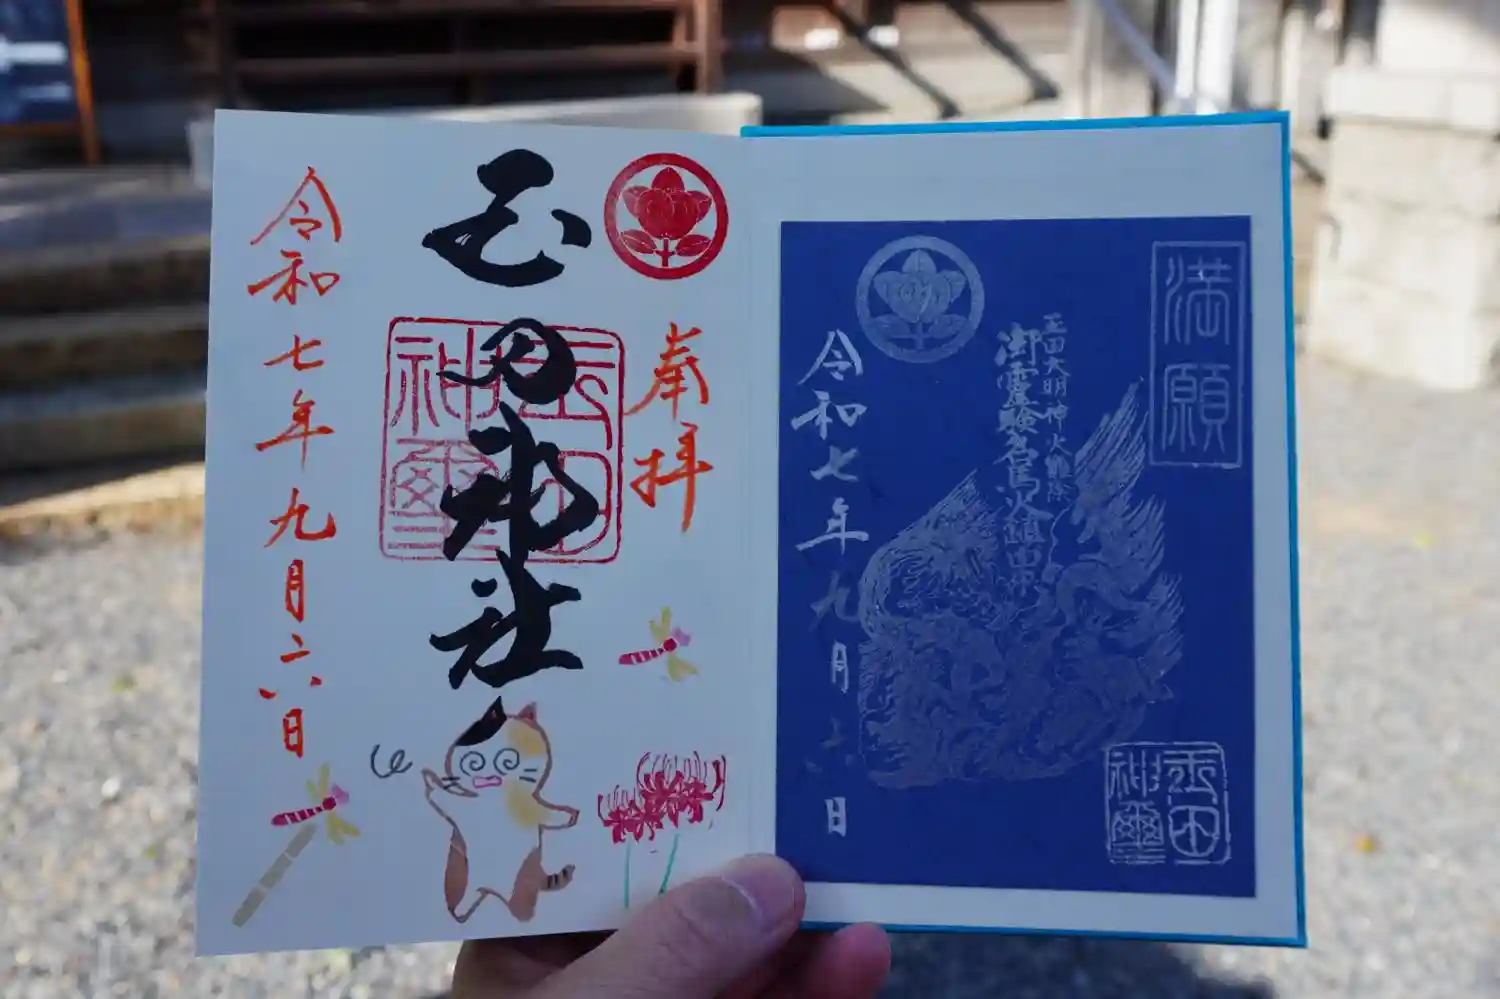 満願
玉田大明神火難除
御霊験名馬火鎮由来
令和七年九月六日
玉田
神璽
奉拝
玉田神社
玉田
神璽
令和七年九月二六日